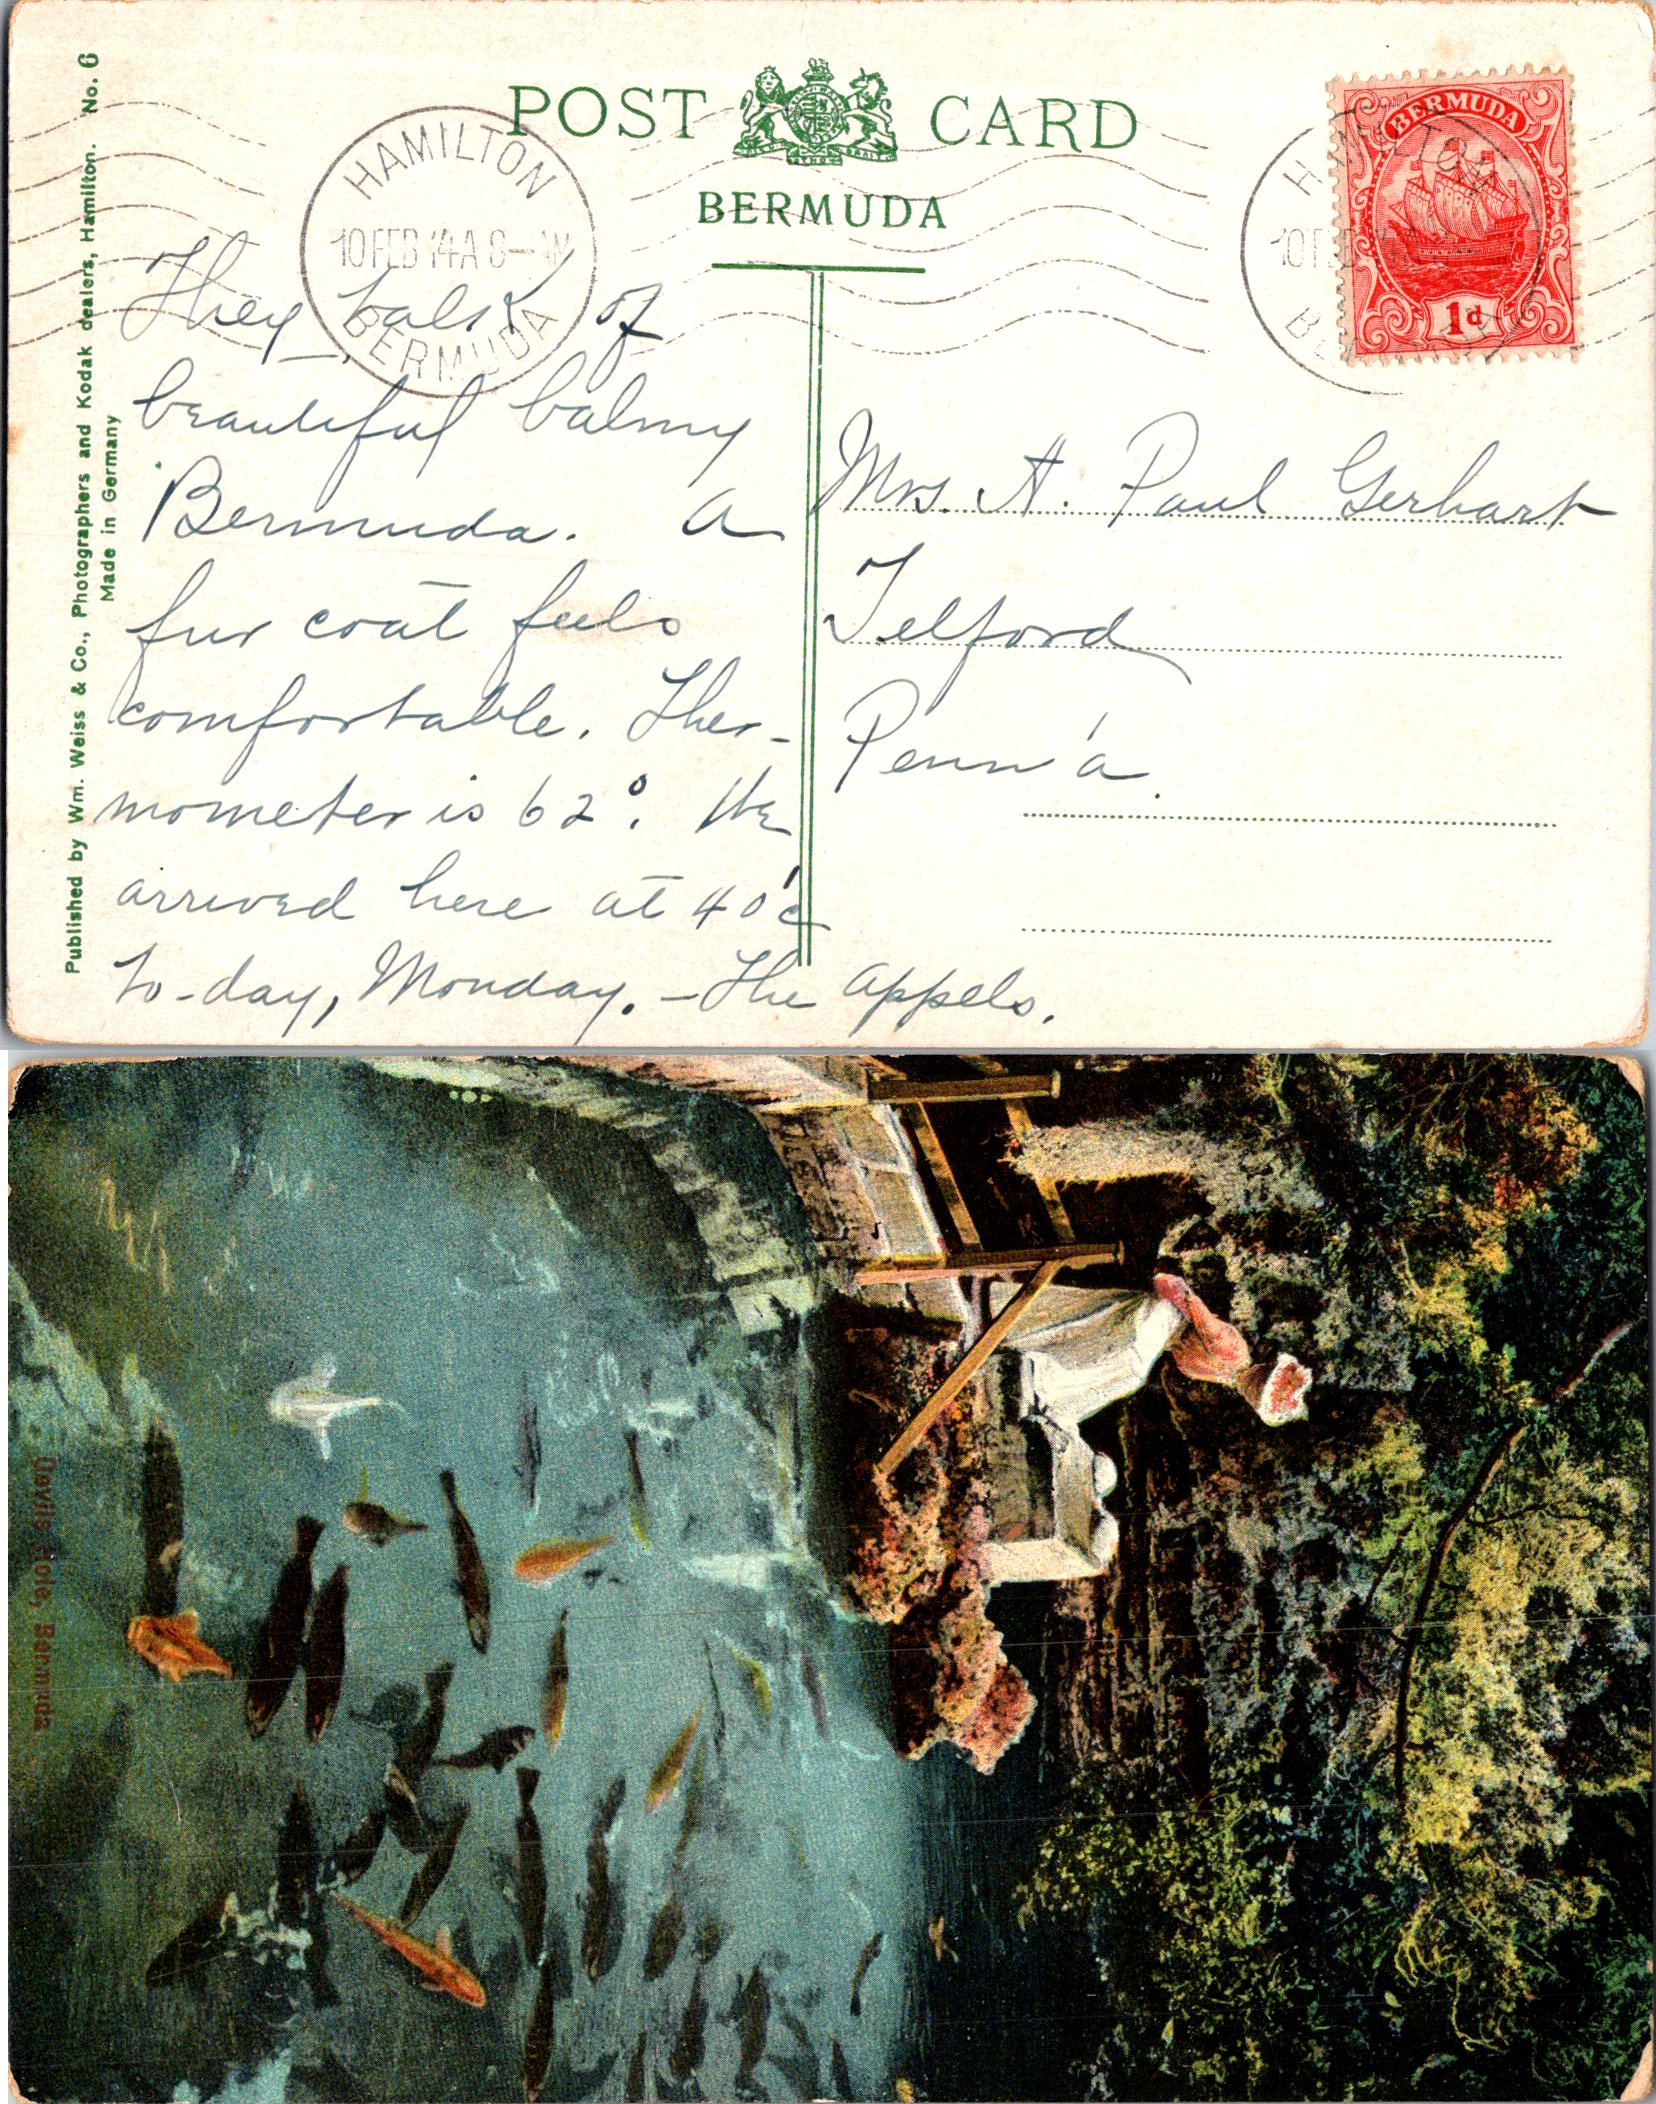 POST CARD
BERMUDA
Published by Wm. Weiss & Co., Photographers and Kodak dealers, Hamilton. No. 6
Made in Germany
HAMILTON
10 FEB 14 A 8-AM
BERMUDA
HAMILTON
BERMUDA
1d
They talk of
beautiful balmy
Bermuda. A
fur coat feels
comfortable. Ther-
mometer is 62°. We
arrived here at 4 o'c
to-day, Monday. - The Appels.
Mrs. A. Paul Gerhart
Telford
Penn'a.
Devils Hole, Bermuda